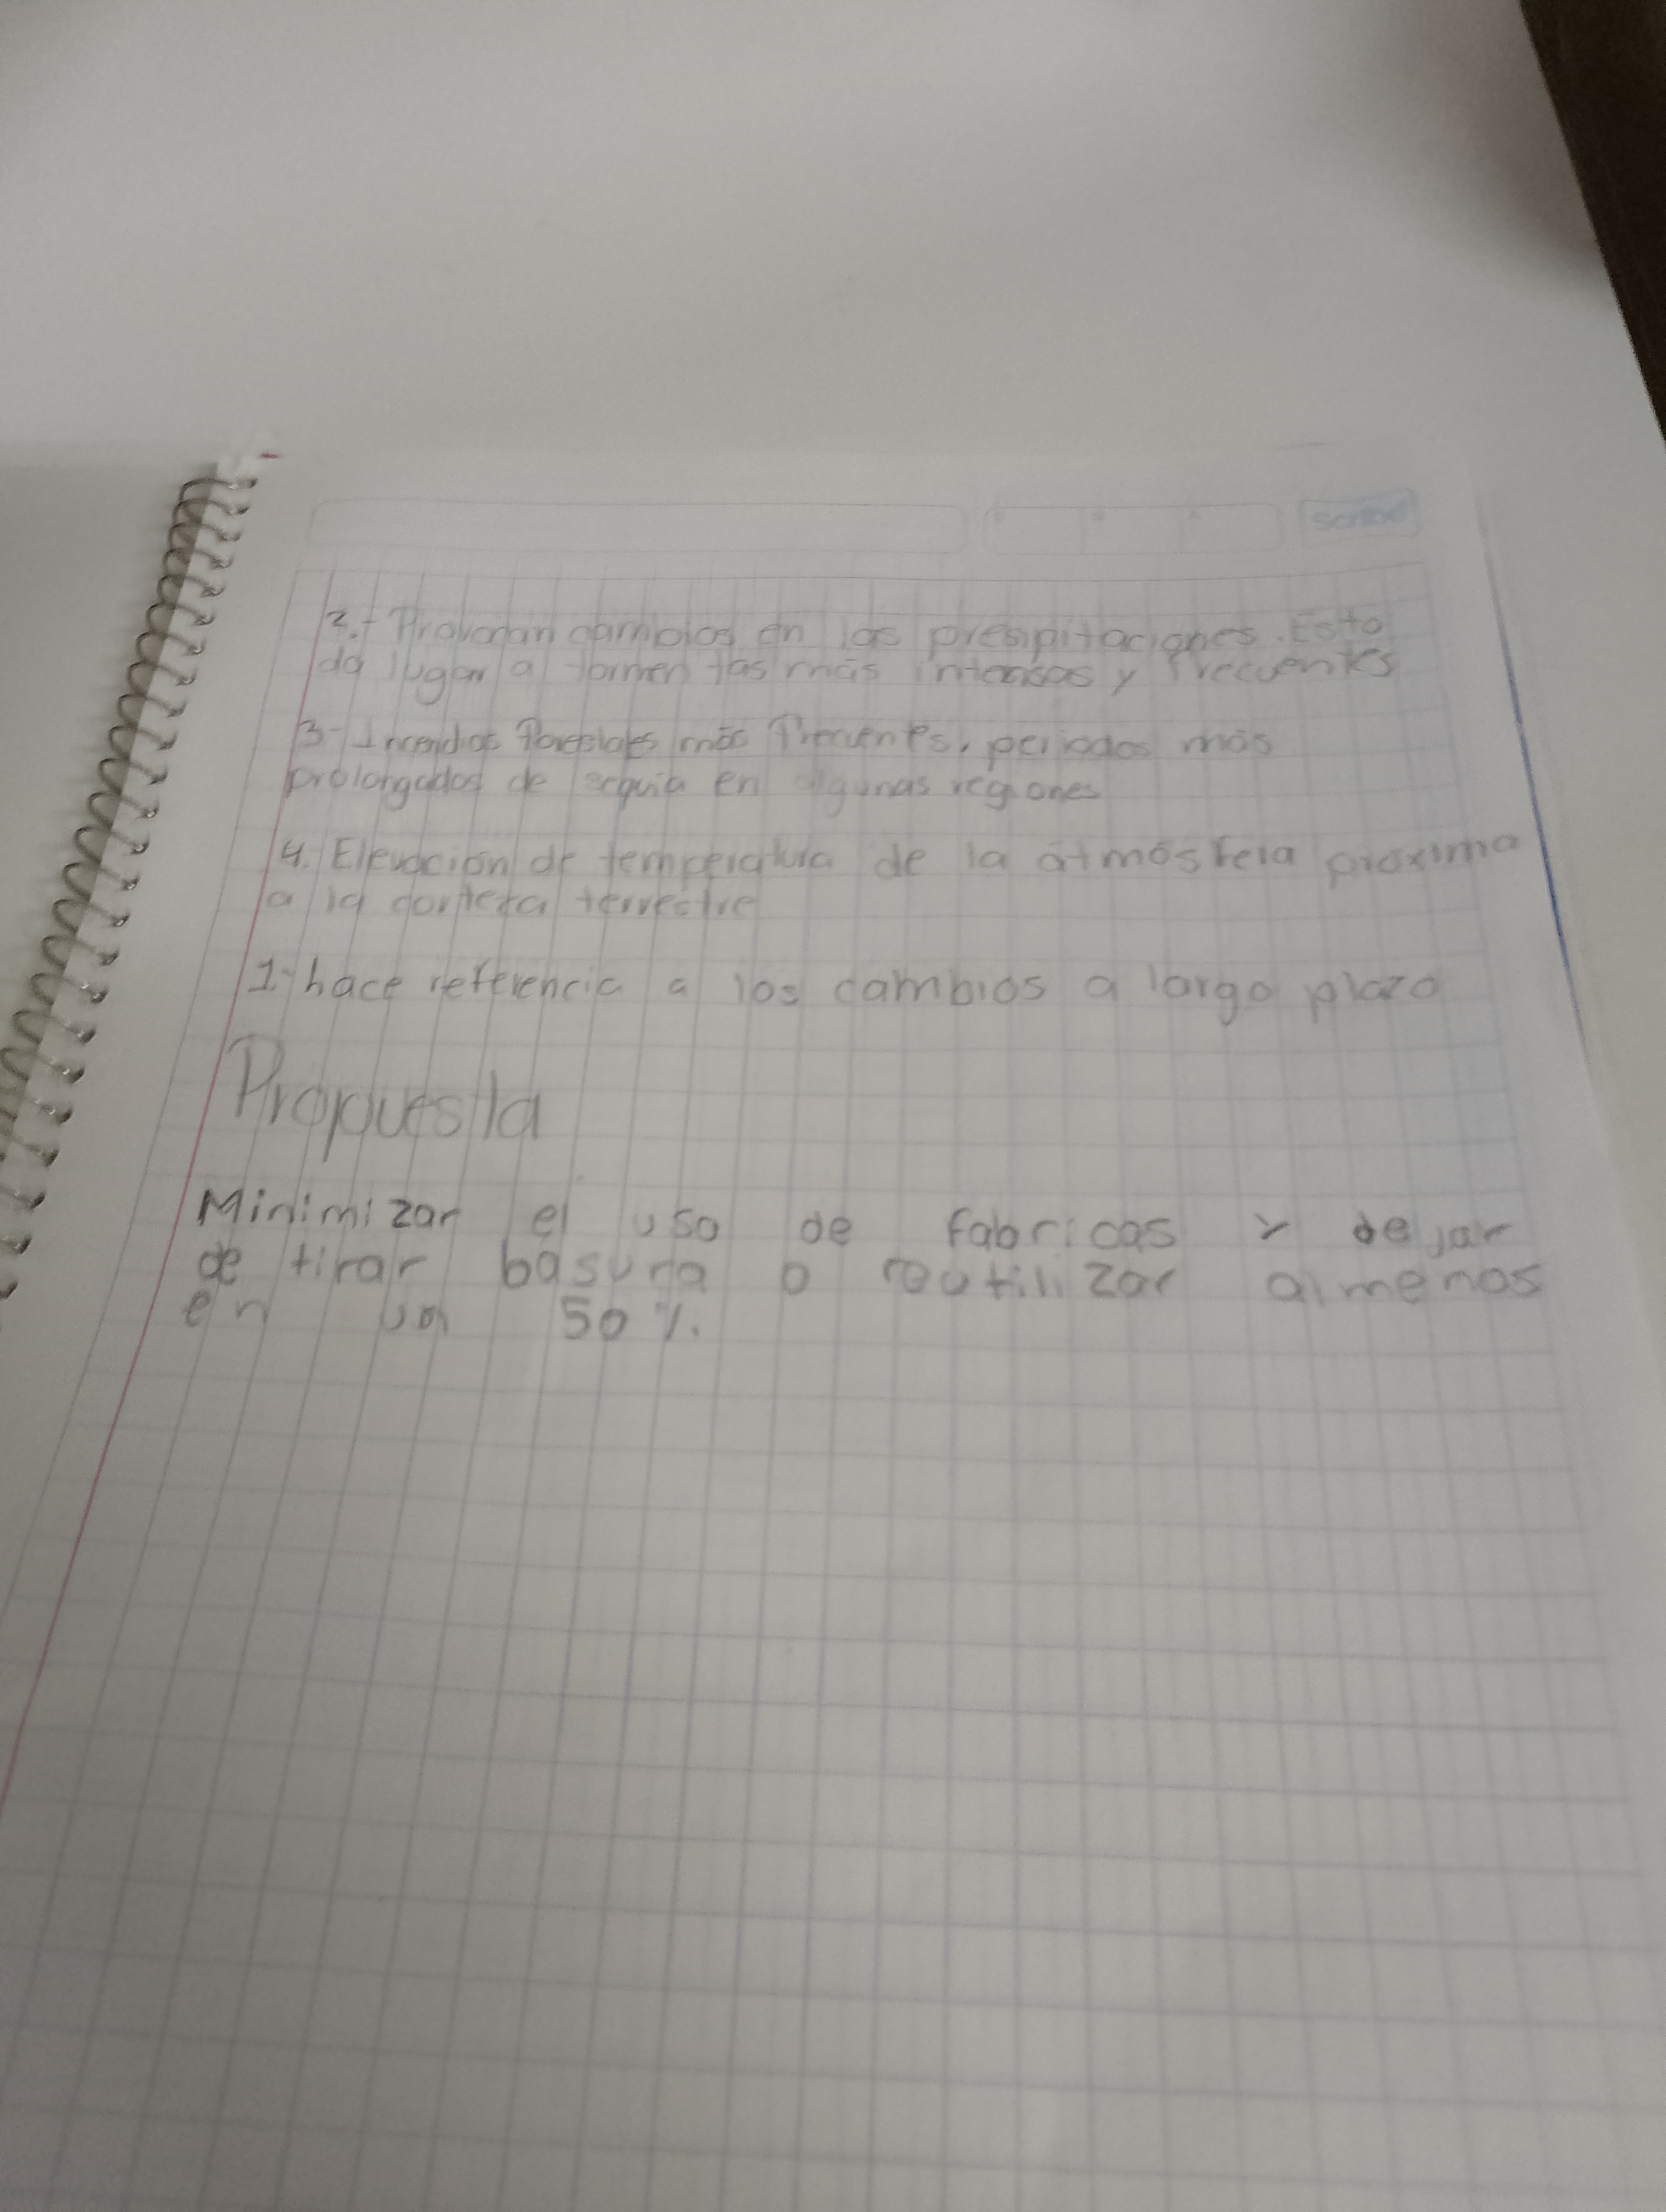 scribe
2.- Provocan cambios en las presipitaciones. Esto
da lugar a tormentas más intensas y frecuentes
3- Incendios forestales más frecuentes, periodos más
prolongados de sequia en algunas regiones
4. Elevación de temperatura de la átmósfera próxima
a la corteza terrestre
1- hace referencia a los cambios a largo plazo
Propuesta
Minimizar el uso de fabricas y dejar
de tirar basura o reutilizar almenos
en un 50%.